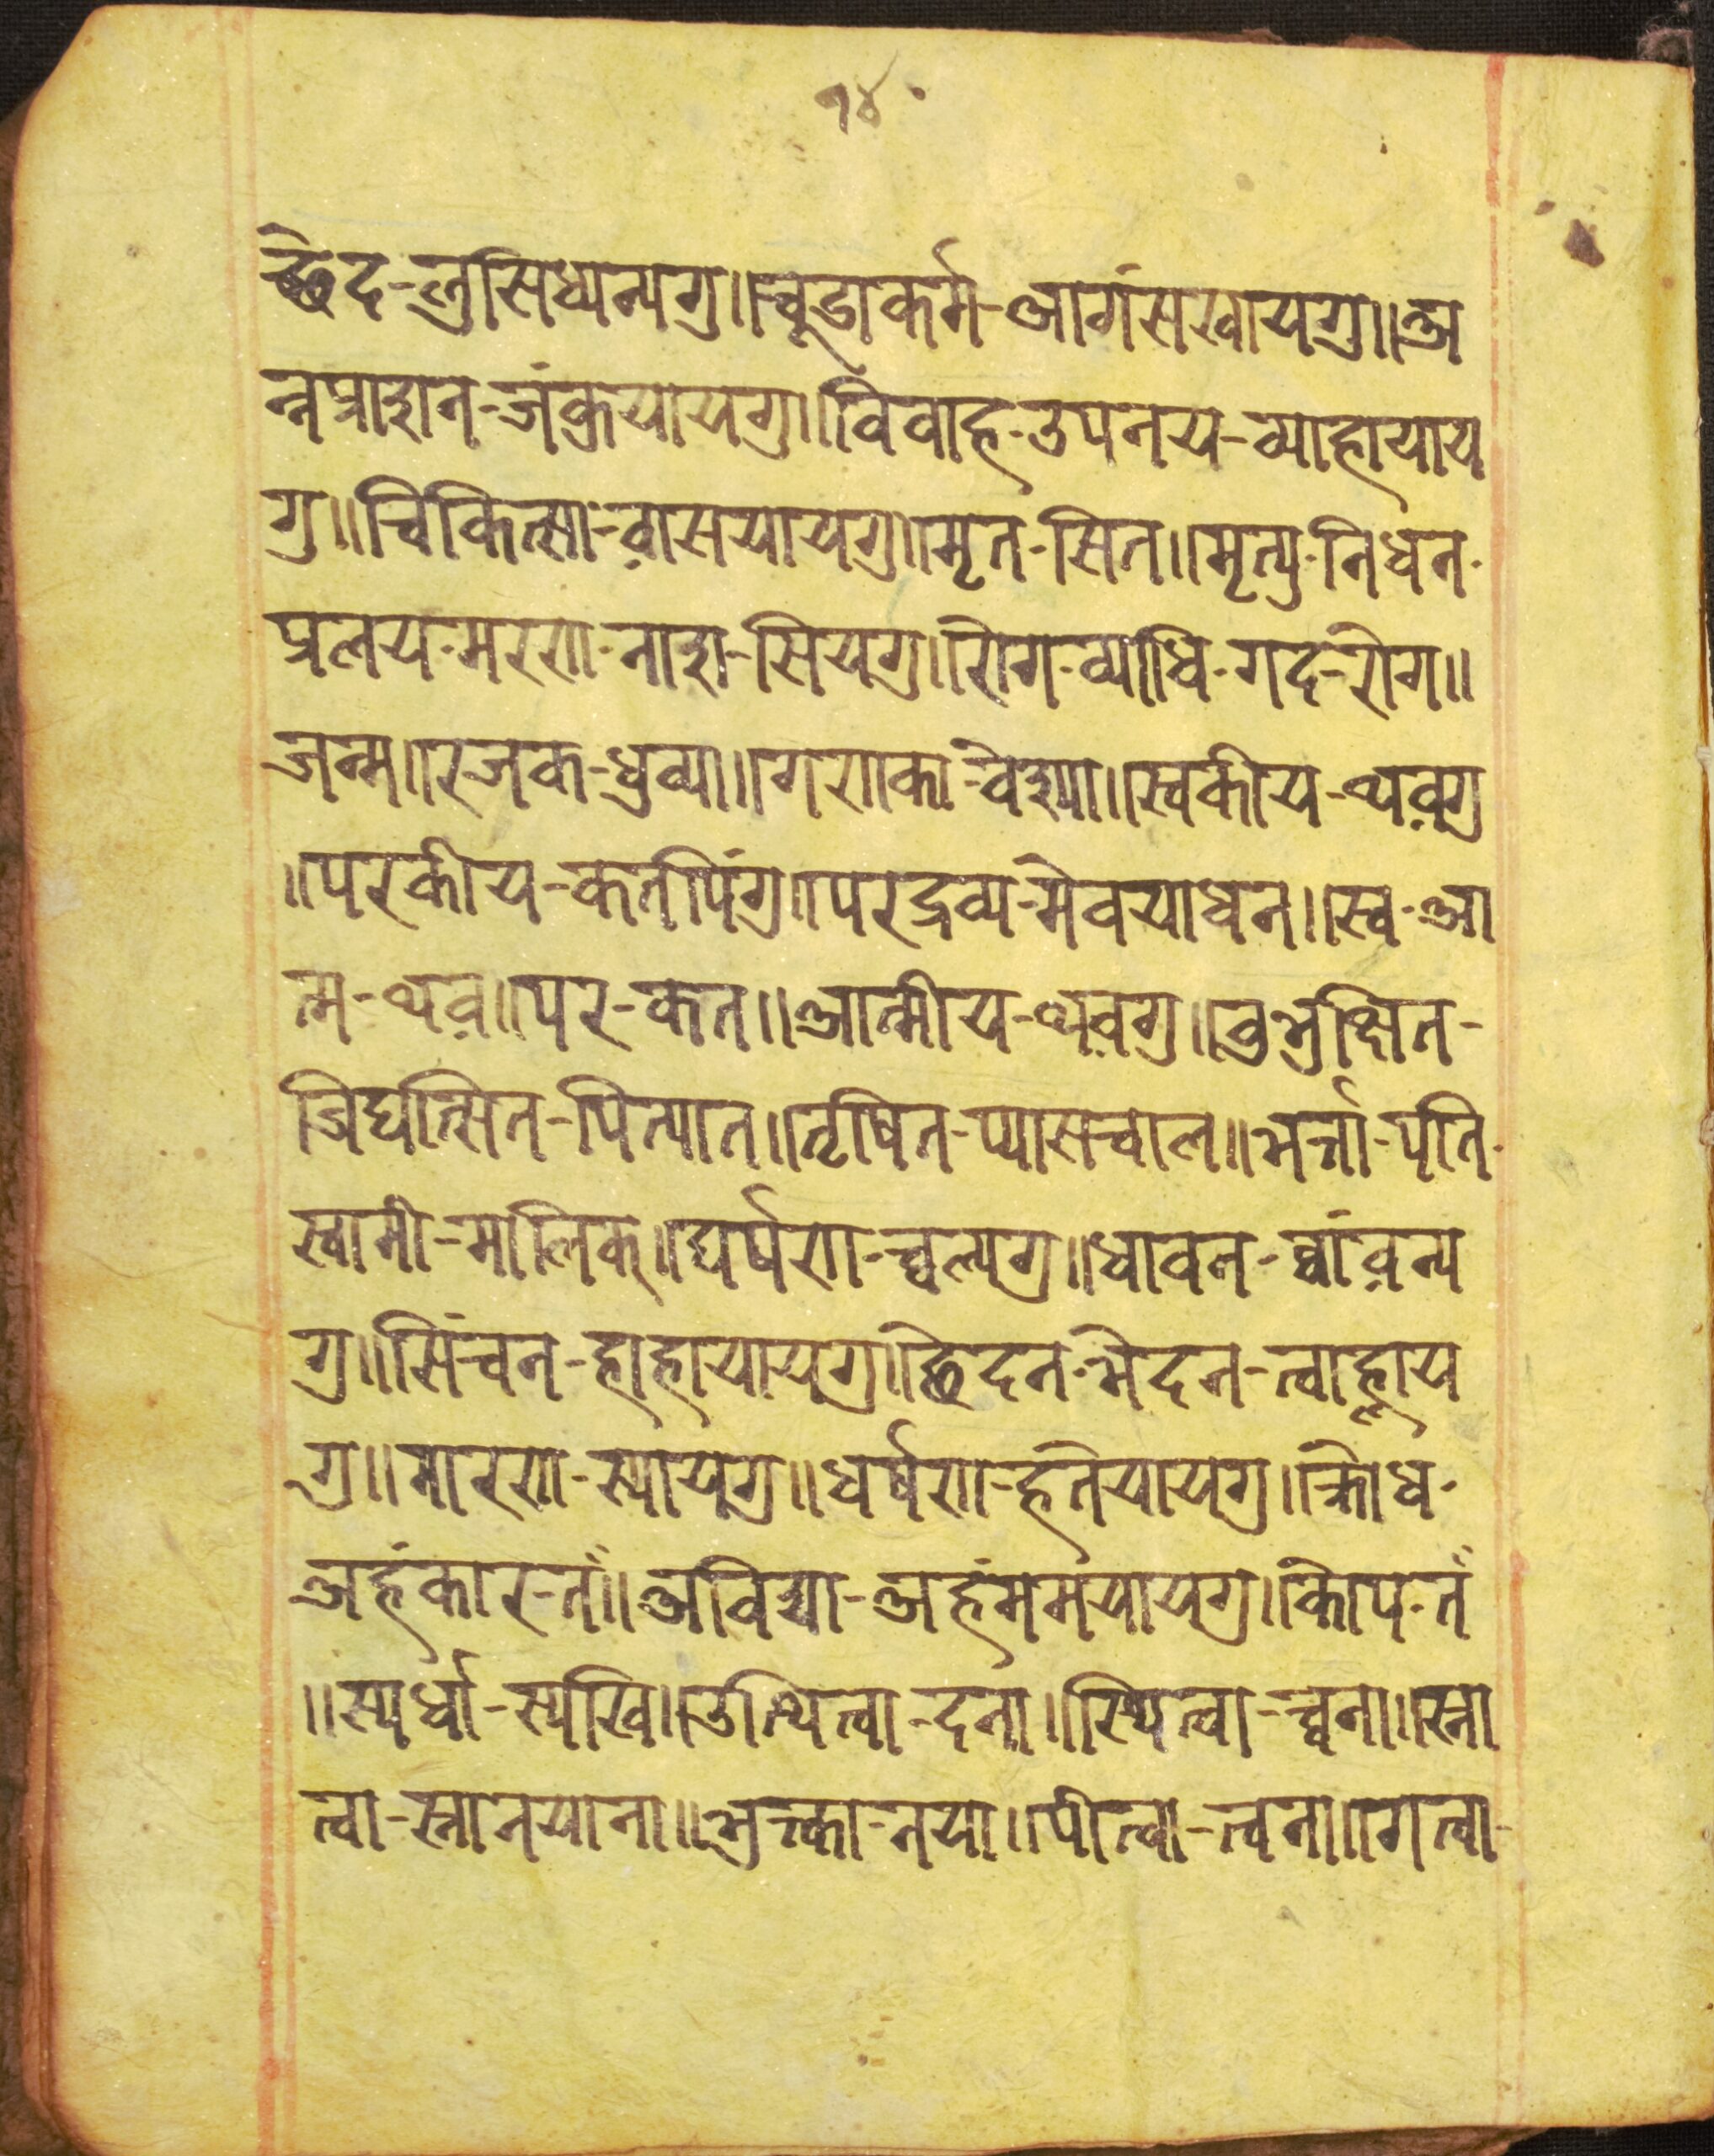 १४
च्छेद-लुसिध्यन्यगु॥चूडाकर्म-आगंसखायगु॥अ
न्नप्राशन-जंक्रयायगु॥विवाह-उपनय-ब्याहायाय
गु॥चिकित्सा-वासयायगु॥मृत-सित॥मृत्यु-निधन-
प्रलय-मरण-नाश-सियगु॥रोग-व्याधि-गद-रोग॥
जन्म॥रजक-धुव्या॥गणका-वेश्या॥स्वकीय-थवगु
॥परकीय-कतपिंगु॥परद्रव्य-मेवयाधन॥स्व-आ
त्म-थव॥पर-कत॥आत्मीय-थवगु॥वुभुक्षित-
जिघत्सित-पित्यात॥तृषित-प्यासचाल॥भर्त्ता-पति-
स्वामी-मालिक्॥घर्षण-च्वल्यगु॥धावन-ब्वांवन्य
गु॥सिंचन-हाहायायगु॥छेदन-भेदन-त्वाह्लाय
गु॥मारण-स्यायगु॥धर्षण-हतेयायगु॥क्रोध-
अहंकार-तं॥अविद्या-अहंममयायगु॥कोप-तं
॥स्पर्धा-स्पखि॥उत्थित्वा-दना॥स्थित्वा-च्वना॥स्ना
त्वा-स्नानयाना॥भुक्त्वा-नया॥पीत्वा-त्वना॥गत्वा-